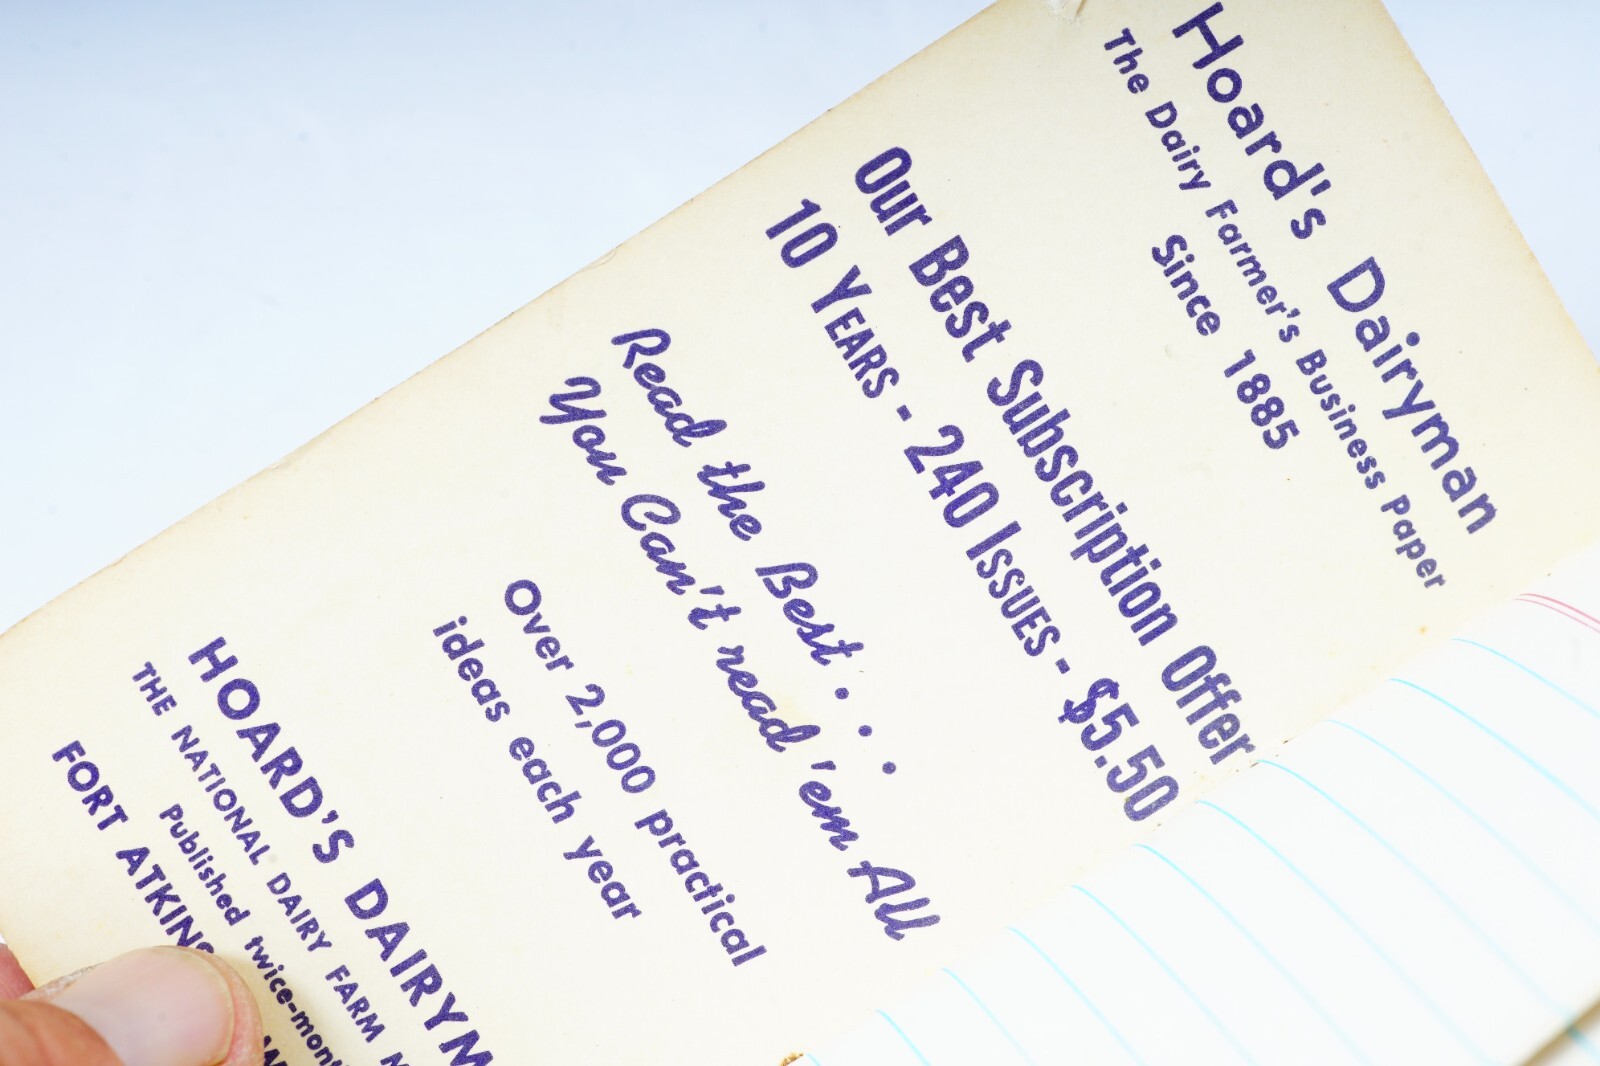 Hoard's Dairyman
The Dairy Farmer's Business Paper
Since 1885
Our Best Subscription Offer
10 YEARS - 240 ISSUES - $5.50
Read the Best . . .
You Can't read 'em All
Over 2,000 practical
ideas each year
HOARD'S
THE NATIONAL DAIRY FARM
Published
FORT